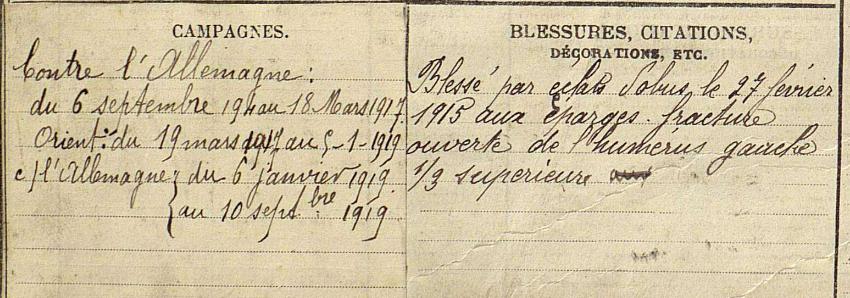 CAMPAGNES.
Contre l'Allemagne :
du 6 septembre 1914 au 18 Mars 1917.
Orient : du 19 mars 1917 au 5-1-1919
c/ l'Allemagne { du 6 janvier 1919
{ au 10 septbre 1919
BLESSURES, CITATIONS,
DÉCORATIONS, ETC.
Blessé par éclats d'obus le 27 février
1915 aux éparges. fracture
ouverte de l'humérus gauche
1/3 superieure